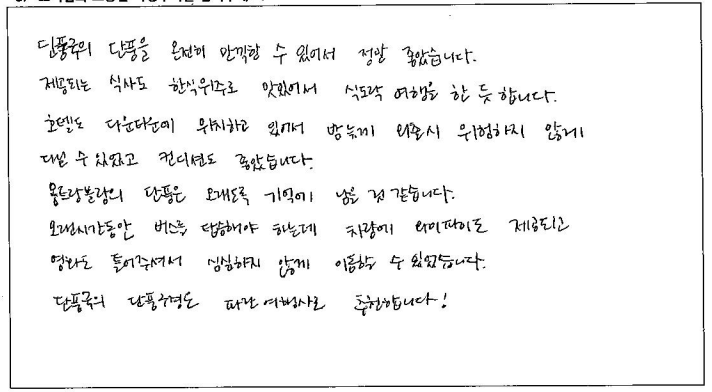 단풍국의 단풍을 온전히 만끽할 수 있어서 정말 좋았습니다.
제공되는 식사도 한식위주로 맛있어서 식도락 여행을 한 듯 합니다.
호텔도 다운타운에 위치하고 있어서 밤늦게 외출시 위험하지 않게
다닐 수 있었고 컨디션도 좋았습니다.
몽트랑블랑의 단풍은 오래도록 기억에 남을 것 같습니다.
오랜시간동안 버스를 탑승해야 하는데 차량에 와이파이도 제공되고
영화도 틀어주셔서 심심하지 않게 이동할 수 있었습니다.
단풍국의 단풍구경은 파란여행사로 추천합니다!